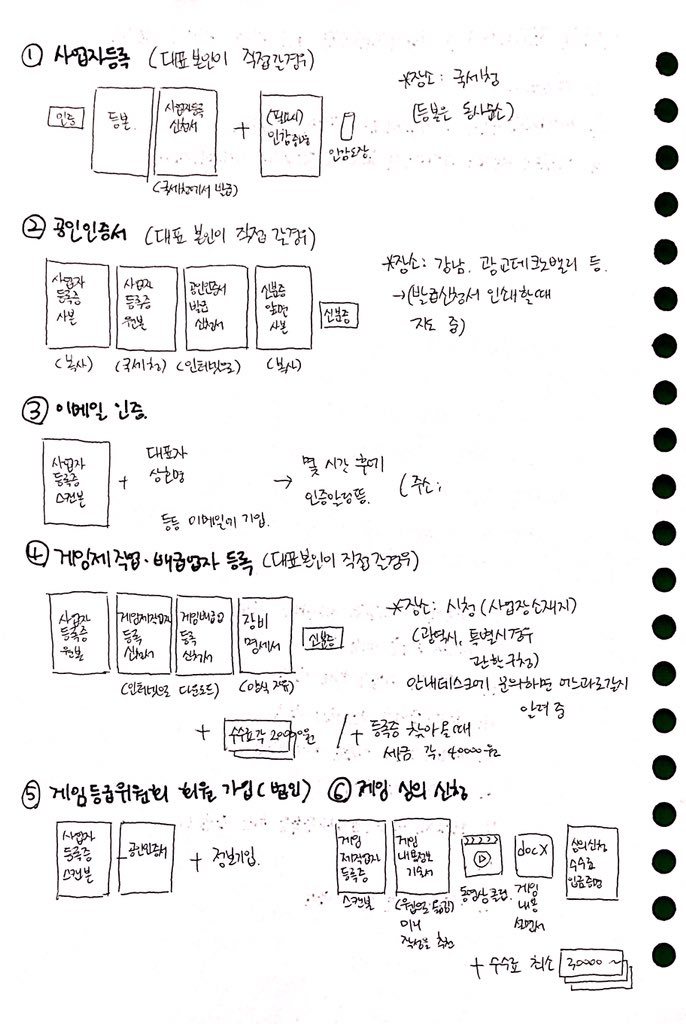 ① 사업자등록 (대표본인이 직접간경우)
*장소: 국세청
(등본은 동사무소)
인증
등본
사업자등록
신청서
+
(필요시)
인감증명
인감도장
(국세청에서 발급)
② 공인인증서 (대표 본인이 직접 간경우)
*장소: 강남, 광교테크노밸리 등.
→(발급신청서 인쇄할때
지도 줌)
사업자
등록증
사본
사업자
등록증
원본
공인인증서
발급
신청서
신분증
앞면
사본
신분증
(복사) (국세청) (인터넷으로) (복사)
③ 이메일 인증
사업자
등록증
스캔본
+
대표자
상호명
등등 이메일에 기입.
→ 몇 시간 후에
인증완료뜸.
(주소:
④ 게임제작업·배급업자 등록 (대표본인이 직접간경우)
사업자
등록증
원본
게임제작업자
등록
신청서
게임배급업
등록
신청서
장비
명세서
신분증
(인터넷으로 다운로드) (양식 자유)
*장소: 시청(사업장소재지)
(광역시, 특별시경우
관할구청)
안내데스크에 문의하면 어느과로갈지
알려줌
+ 수수료 각 20000원 / + 등록증 찾아올때
세금 각 40000원
⑤ 게임등급위원회 회원 가입(법인)
사업자
등록증
스캔본
공인인증서
+ 정보기입.
⑥ 게임 심의 신청
게임
제작업자
등록증
스캔본
게임
내용정보
기술서
미리
작성을 추천
동영상 클립
docx
게임
내용
설명서
심의신청
수수료
입금증명
+ 수수료 최소 30000 ~